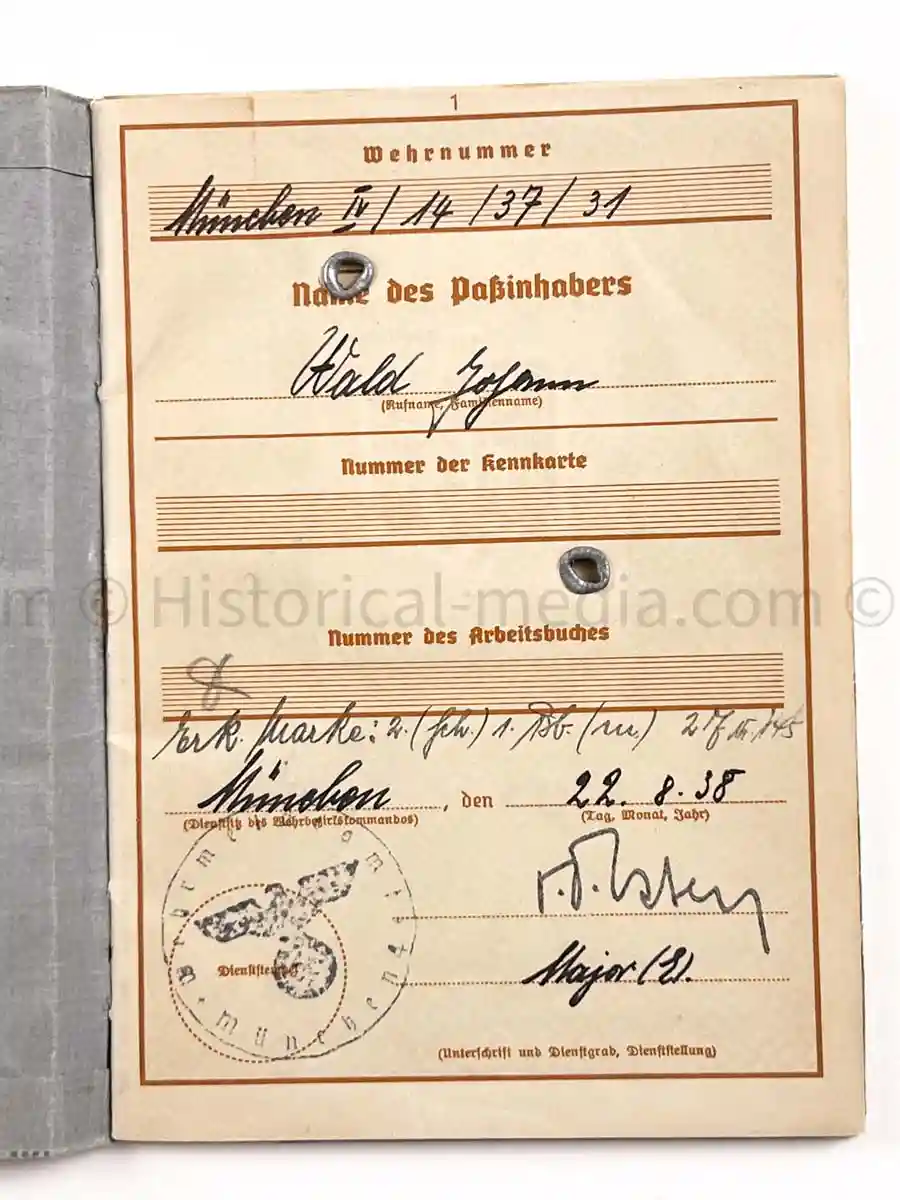 1
Wehrnummer
München IV / 14 / 37 / 31
Name des Paßinhabers
Wald Johann
(Rufname, Familienname)
Nummer der Kennkarte
m © Historical-media.com ©
Nummer des Arbeitsbuches
Erk. Marke: 2. (sch.) 1.
München, den 22. 8. 38
(Dienstsitz des Wehrbezirkskommandos) (Tag, Monat, Jahr)
Dienststempel
Major (E).
Wehrmeldeamt München 4
(Unterschrift und Dienstgrad, Dienststellung)